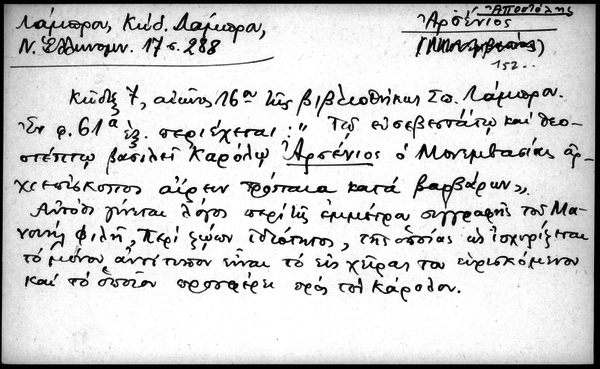 Λάμπρου, Κώδ. Λάμπρου,
Ν. Ἑλληνομν. 17 σ. 288
Ἀποστόλης
Ἀρσένιος
152..
Κῶδιξ 7, αἰῶνος 16ου τῆς βιβλιοθήκης Σπ. Λάμπρου.
Ἐν φ. 61α ἑξ. περιέχεται: "Τῷ εὐσεβεστάτῳ καὶ θεο-
στέπτῳ βασιλεῖ Καρόλῳ Ἀρσένιος ὁ Μονεμβασίας ἀρ-
χιεπίσκοπος αἴρειν τρόπαια κατὰ βαρβάρων».
Αὐτόθι γίνεται λόγος περὶ τῆς ἐμμέτρου συγγραφῆς τοῦ Μα-
νουὴλ Φιλῆ, Περὶ ζῴων ἰδιότητος, τῆς ὁποίας ὡς ἰσχυρίζεται
τὸ μόνον ἀντίτυπον εἶναι τὸ εἰς χεῖρας του εὑρισκόμενον
καὶ τὸ ὁποῖον προσφέρει πρὸς τὸν Κάρολον.